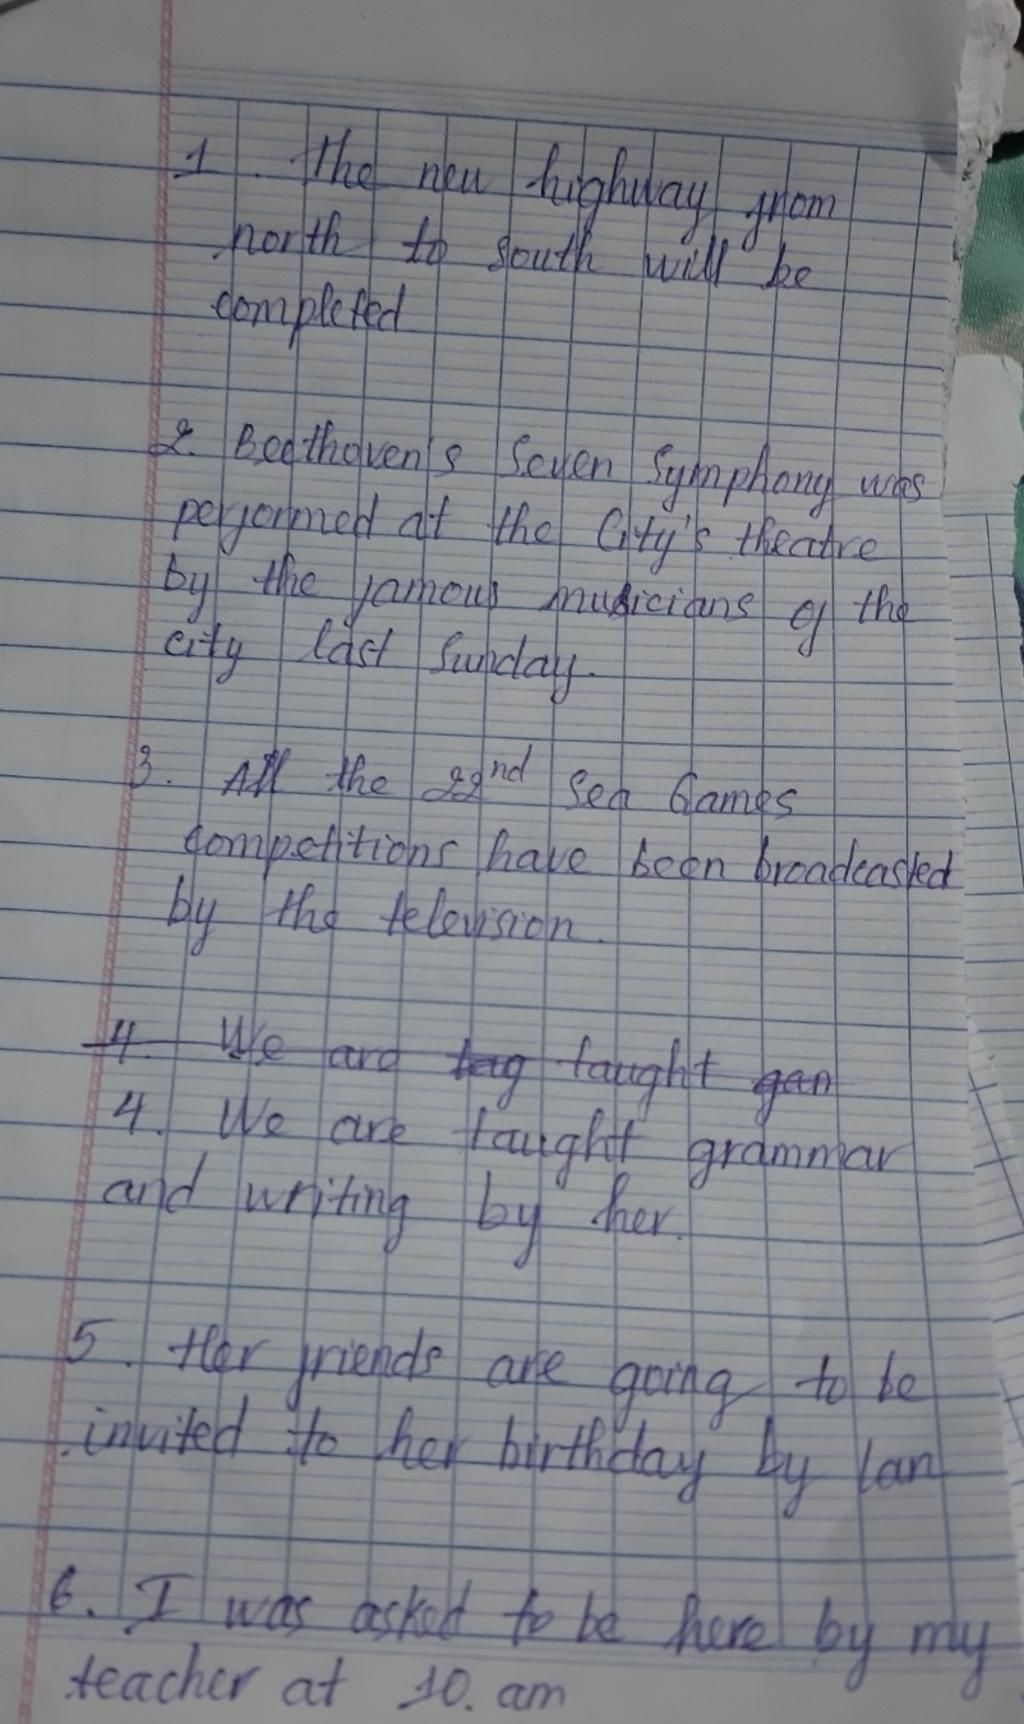 1. The new highway from
north to south will be
completed
2. Beethoven's Seven Symphony was
performed at the City's theatre
by the famous musicians of the
city last Sunday.
3. All the 22nd Sea Games
competitions have been broadcasted
by the television.
4. We are tag taught gan
4. We are taught grammar
and writing by her.
5. Her friends are going to be
invited to her birthday by Lan
6. I was asked to be here by my
teacher at 10. am